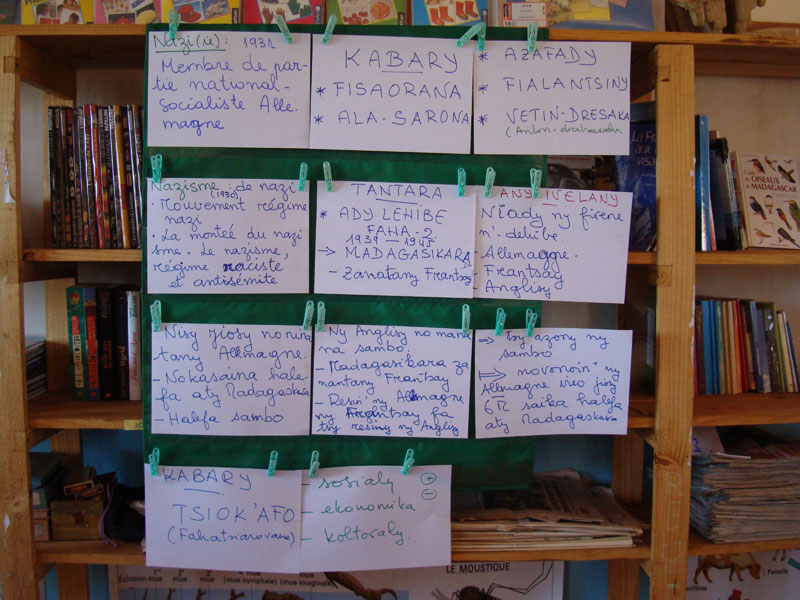 Nazi (ie) : 1931
Membre de par-
tie national-
socialiste Alle-
magne
KABARY
* FISAORANA
* ALA-SARONA
* AZAFADY
* FIALANTSINY
* VETIN-DRESAKA
Nazisme : de nazi
(1930)
. Mouvement régime
nazi
. La montée du nazi
sme. Le nazisme,
régime raciste
et antisémite
TANTARA
* ADY LEHIBE
FAHA-2
1939 - 1945
→ MADAGASIKARA
- Zanatany Frantsay
ANY IVELANY
Niady ny firene
n'dehibe.
- Allemagne.
- Frantsay
- Anglisy
- Nisy Jiosy no nira
tany Allemagne.
- Nokasaina hale-
fa aty Madagasikara
- Halefa sambo
- Ny Anglisy no mana
na sambo.
- Madagasikara za
nantany Frantsay
- Resin'ny Allemagne
ny Frantsay fa
tsy resiny ny Anglisy
⇒ Tsy azony ny
sambo
⇒ novonoin'ny
Allemagne ireo jiosy
6M saika halefa
aty Madagasikara
KABARY
TSIOK'AFO
- sosialy +
- ekonomika -
- koltoraly.
Guide des
OISEAUX
de MADAGASCAR
Eclosion-mue
1re mue
2e mue
(mue nymphale)
3e mue
(mue imaginale)
LE MOUSTIQUE